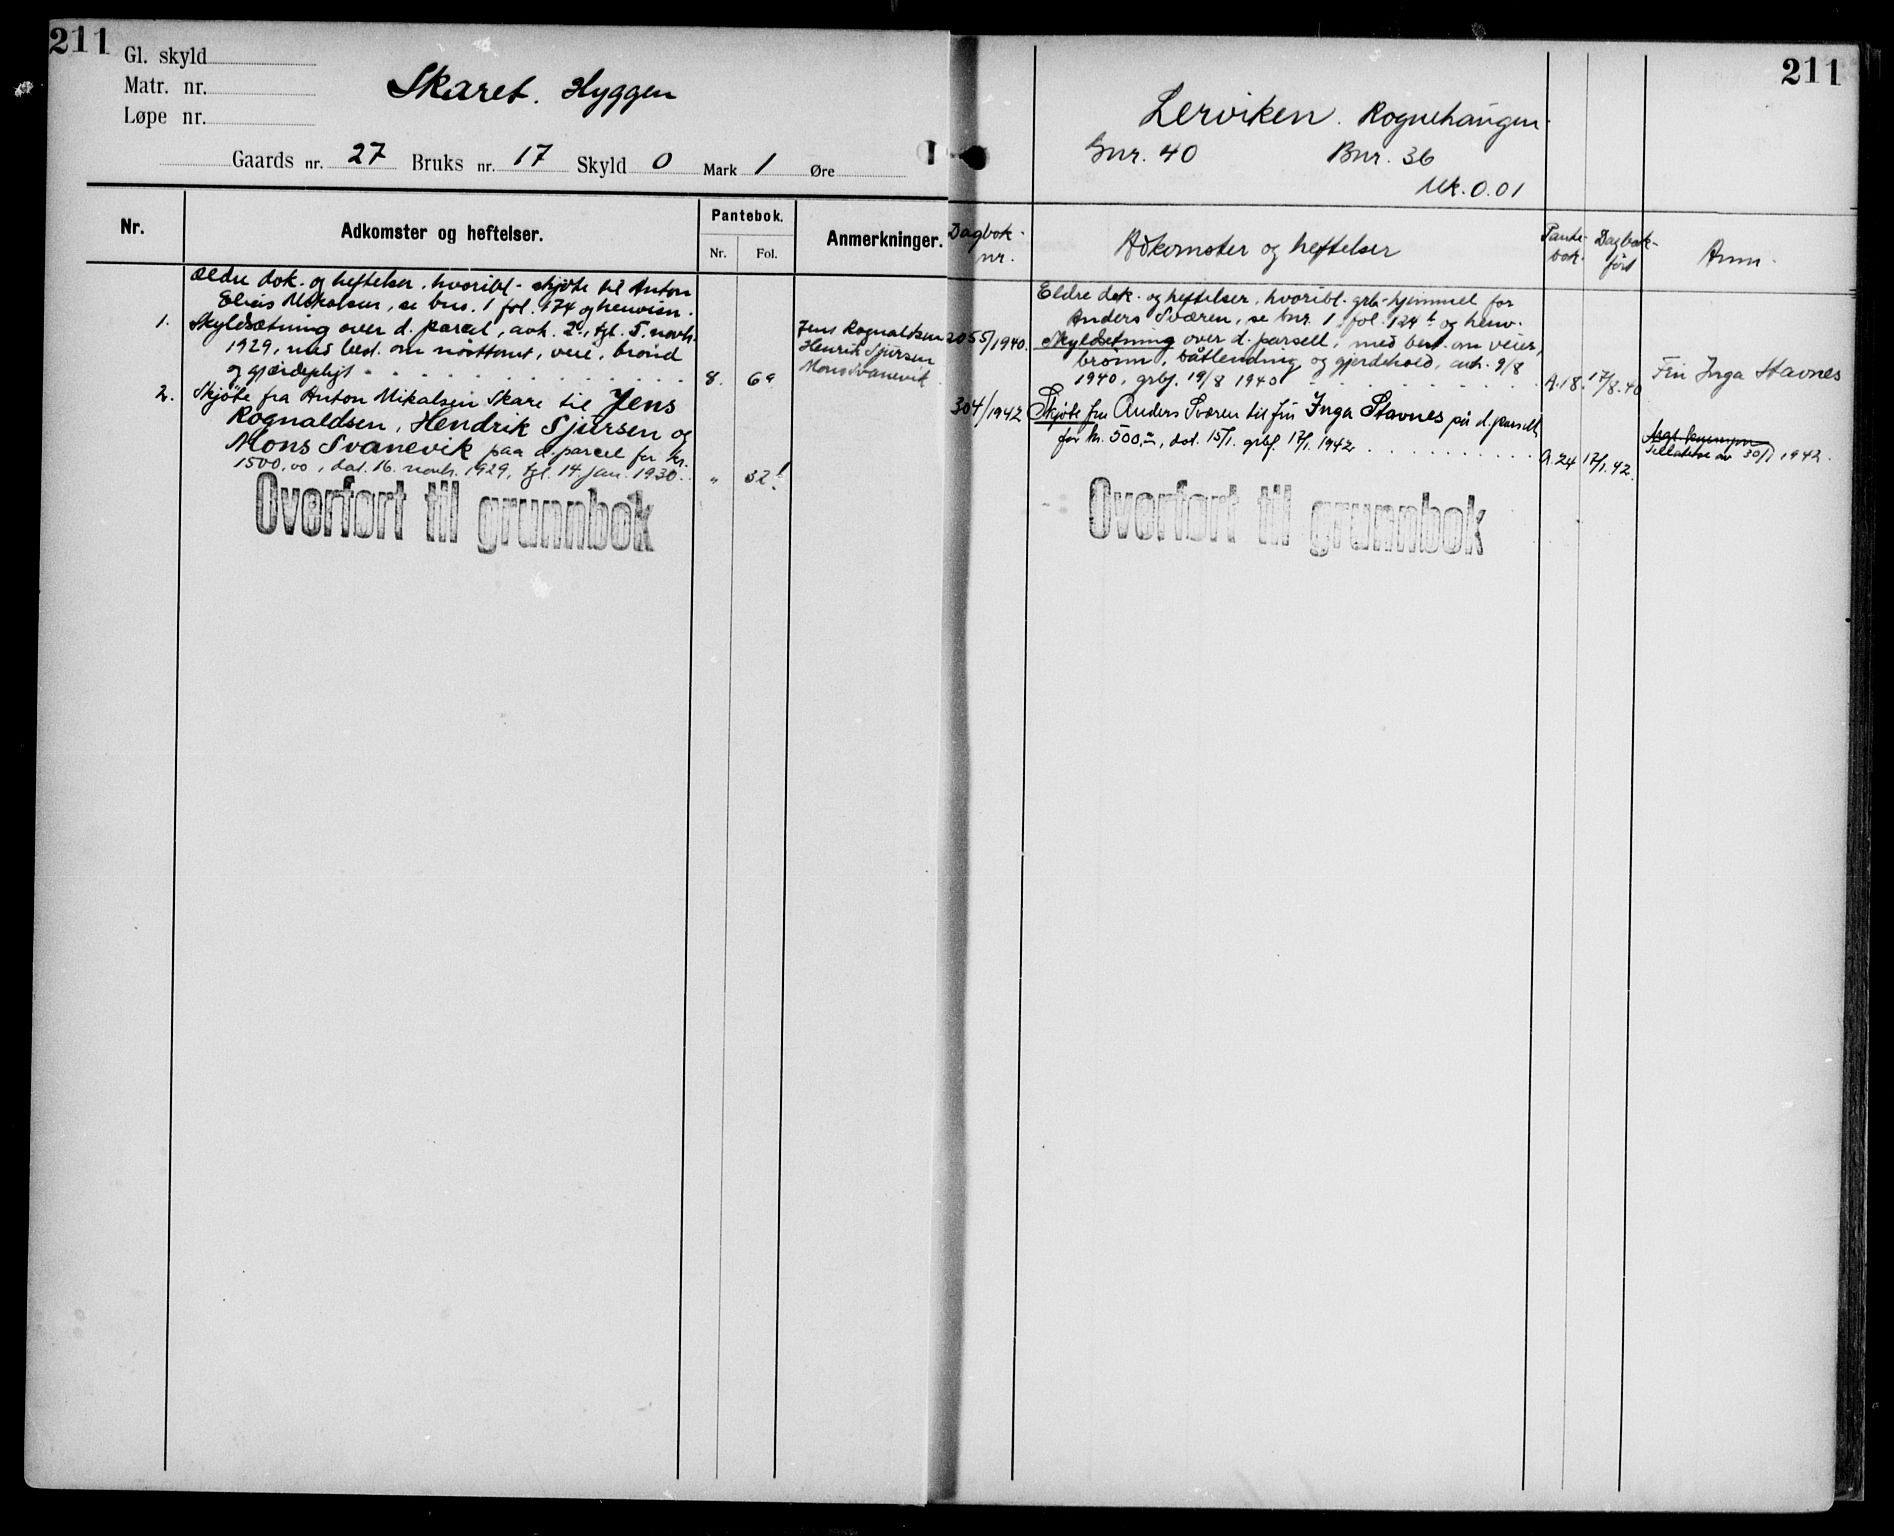 211
Gl. skyld
Matr. nr.
Løpe nr.
Skaret. Hyggen
Gaards nr. 27 Bruks nr. 17 Skyld 0 Mark 1 Øre
Nr.
Adkomster og heftelser.
Pantebok.
Nr. Fol.
Anmerkninger.
Ældre dok. og heftelser, hvoribl. skjøte til Anton
Mikalsen, se bno. 1 fol. 174 og henvisn.
1. Skyldsætning over d. parcel, avh. 2., tgl. 5. novbr.
1929, med best. om nösttomt, veie, brönd
og gjærdepligt 8. 6a
Jens Rognaldsen
Henrik Sjursen
Mons Svanevik
2. Skjöte fra Anton Mikalsen Skare til Jens
Rognaldsen, Hendrik Sjursen og
Mons Svanevik paa d. parcel for kr.
1500,00, dat. 16. novbr. 1929, tgl. 14. jan. 1930. " 32
Overført til grunnbok
211
Lerviken. Rognehaugen
Gnr. 40 Bnr. 36
Mk. 0.01
Dagbok-
nr.
Adkomster og heftelser
Pante-
bok.
Dagbok-
ført
Anm.
Eldre dok. og heftelser, hvoribl. grb. hjemmel for
Anders Sværen, se bnr. 1 fol. 124 b og henv.
2055/1940. Skyldsetning over d. parsell, med best. om veier,
brönn, båtlending og gjerdehold, avh. 9/8
1940, grbf. 19/8 1940 A.18. 17/8.40
Frü Inga Stavnes
304/1942 Skjøte fra Anders Sværen til frü Inga Stavnes på d. parsell
for kr. 500,-, dat. 15/1. grbf. 17/1. 1942 A.24 17/1.42.
30/1 1942.
Overført til grunnbok